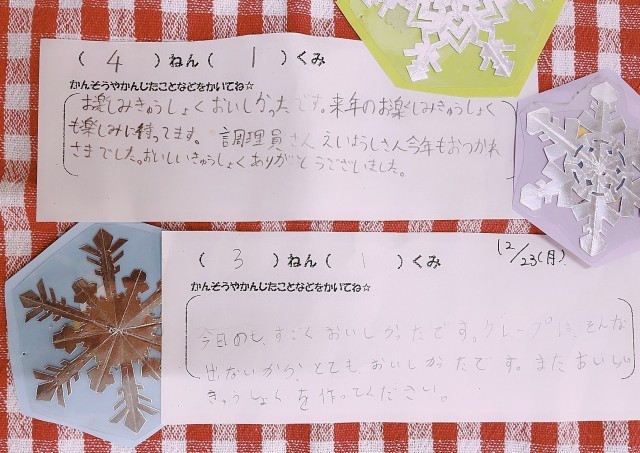 ( 4 ) ねん ( 1 ) くみ
かんそうやかんじたことなどをかいてね☆
お楽しみきゅうしょくおいしかったです。来年のお楽しみきゅうしょく
も楽しみに待ってます。 調理員さん えいようしさん今年もおつかれ
さまでした。おいしいきゅうしょくありがとうございました。
( 3 ) ねん ( 1 ) くみ 12/23(月)
かんそうやかんじたことなどをかいてね☆
今日のも、すごくおいしかったです。クレープは、そんな
出ないから、とても、おいしかったです。またおいしい
きゅうしょくを作ってください。